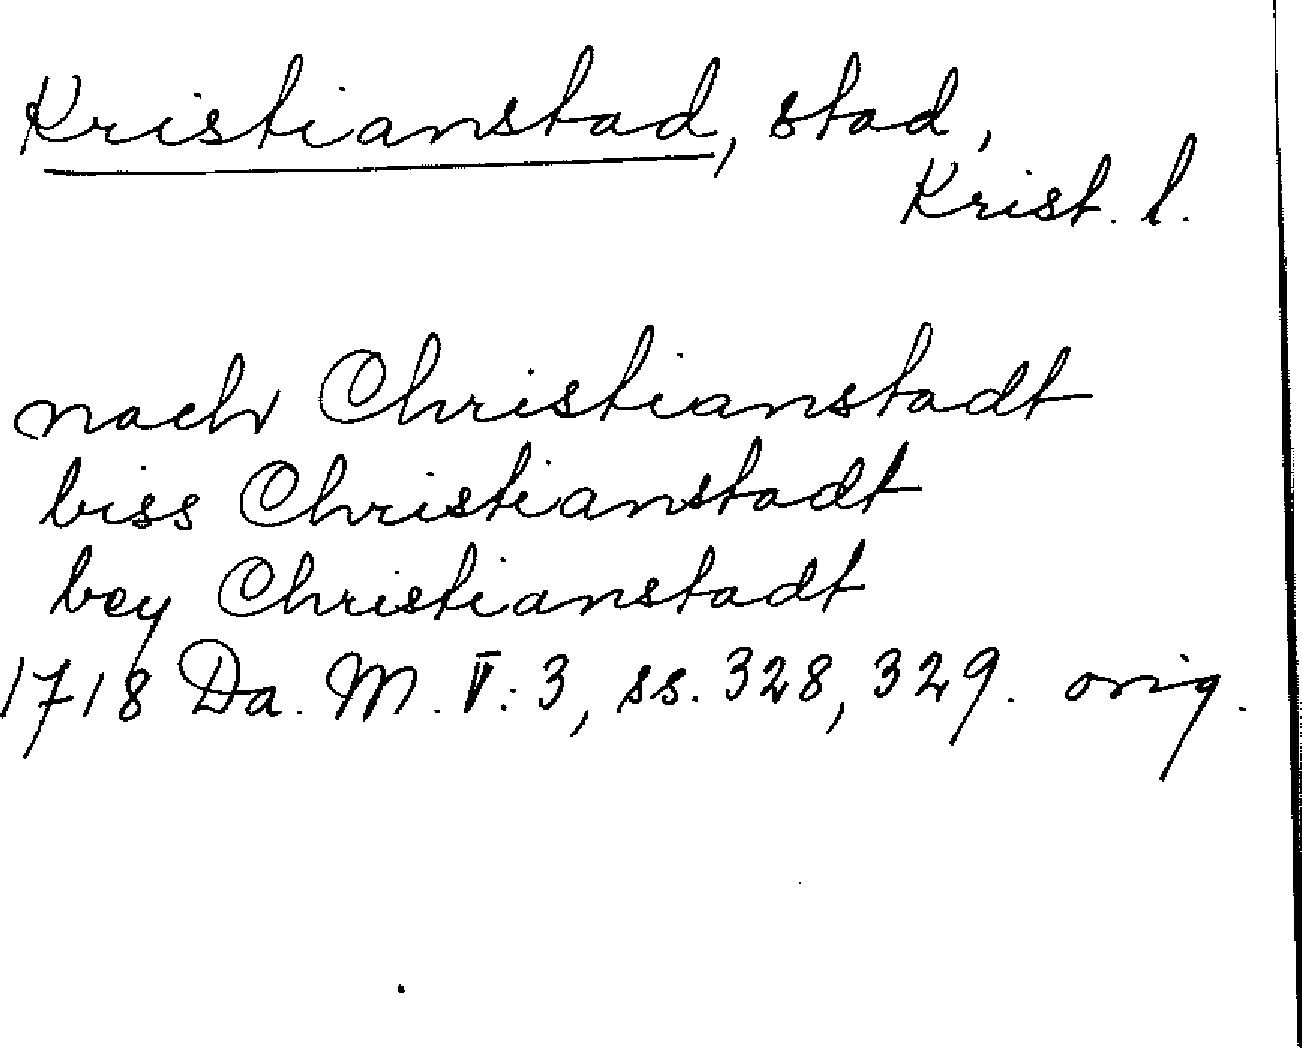 Kristianstad, stad,
Krist. l.
nach Christianstadt
biss Christianstadt
bey Christianstadt
1718 Da. M. V: 3, ss. 328, 329. orig.